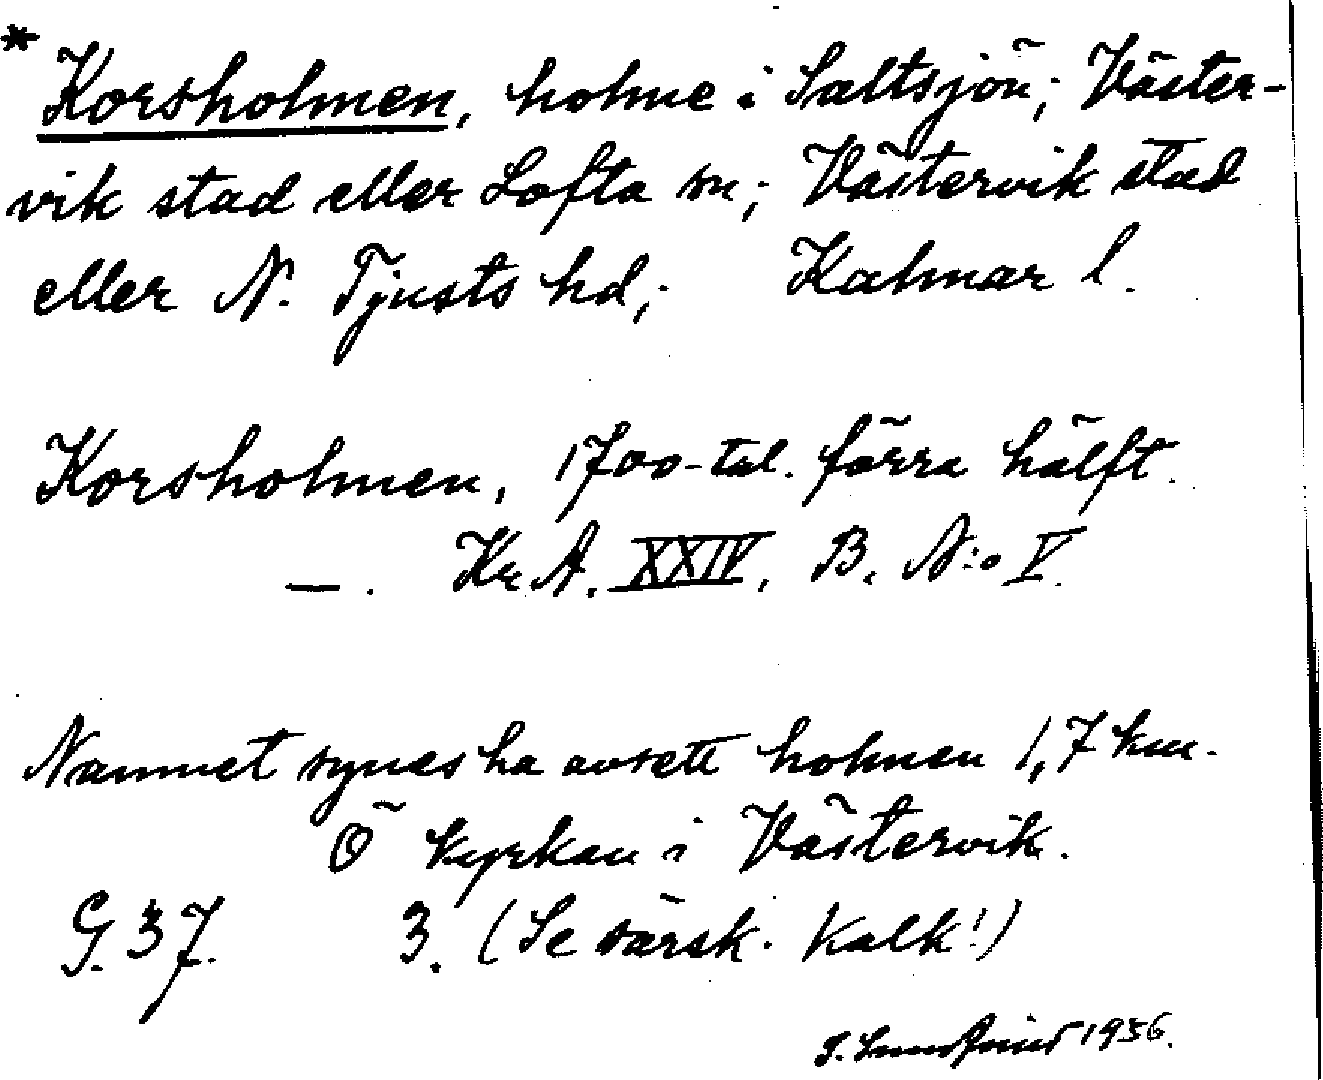 * Korsholmen, holme i Saltsjön; Väster-
vik stad eller Lofta sn; Västervik stad
eller N. Tjusts hd; Kalmar l.
Korsholmen, 1700-tal. förra hälft.
— . Kr. A. XXIV, B. N:o V.
Namnet synes ha avsett holmen 1,7 km.
Ö kyrkan i Västervik.
G. 37. 3. (Se särsk. Kalk!)
1936.